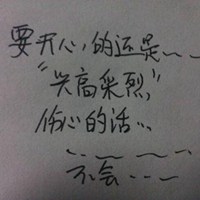 要开心,的还是~~
"兴高采烈"
伤心的话...
...~~~
不会...~